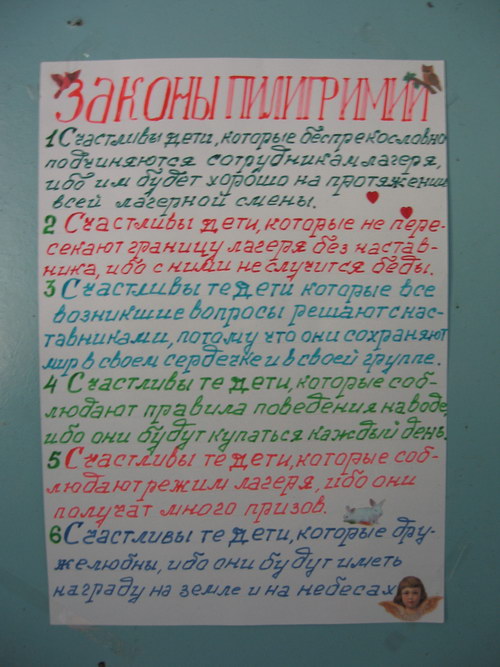 Законы Пилигримии
1 Счастливы дети, которые беспрекословно
подчиняются сотрудникам лагеря,
ибо им будет хорошо на протяжении
всей лагерной смены.
2 Счастливы дети, которые не пере-
секают границу лагеря без настав-
ника, ибо с ними не случится беды.
3 Счастливы те дети которые все
возникшие вопросы решают с нас-
тавниками, потому что они сохраняют
мир в своем сердечке и в своей группе.
4 Счастливы те дети, которые соб-
людают правила поведения на воде,
ибо они будут купаться каждый день.
5 Счастливы те дети, которые соб-
людают режим лагеря, ибо они
получат много призов.
6 Счастливы те дети, которые дру-
желюбны, ибо они будут иметь
награду на земле и на небесах